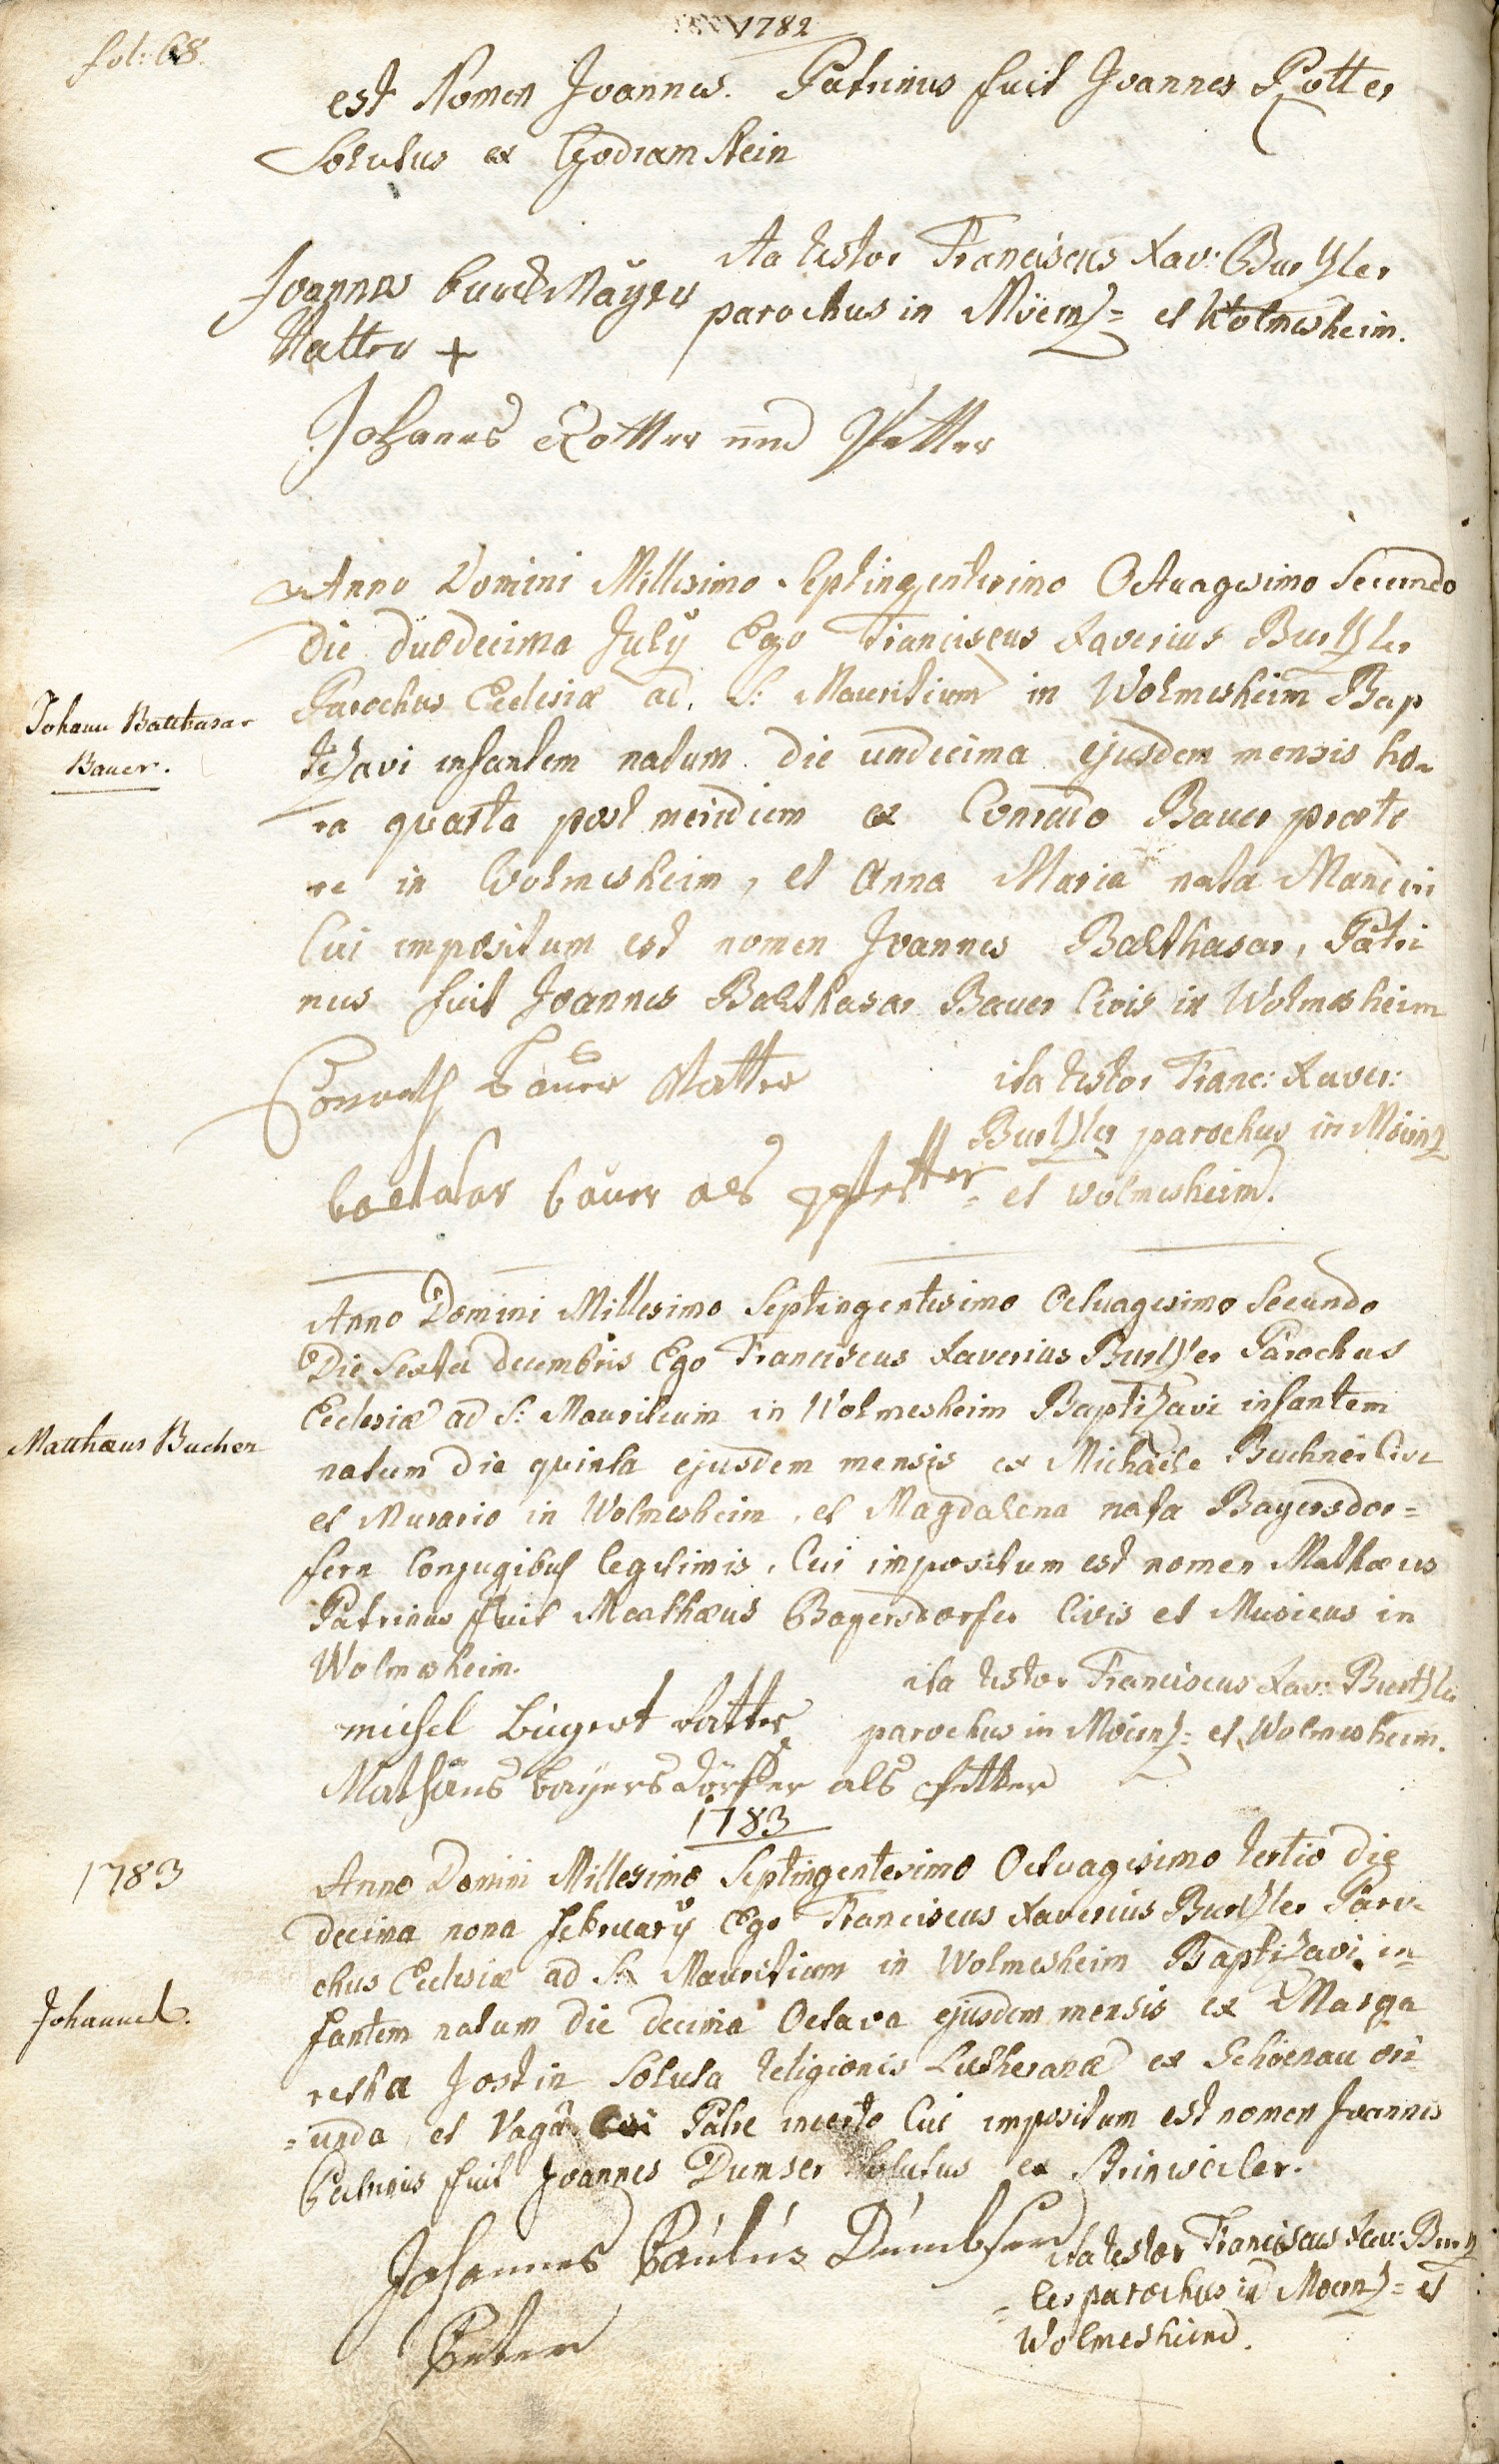 1782
fol: 68.
est Nomen Joannes. Patrinus fuit Joannes Rotter
Solutus ex Godramstein
ita testor Franciscus Xav: Burtzler
parochus in Mörtz= et Wolmesheim.
Joannes
Vatter +
Johanes Rotter und Petter
Anno Domini Millesimo Septingentesimo Octuagesimo Secundo
die duodecima July Ego Franciscus Xaverius Burtzler
Parochus Ecclesiæ ad S: Mauritium in Wolmesheim Bap
Johann Balthasar
Bauer.
tizavi infantem natum die undecima ejusdem mensis ho-
ra quarta post meridiem ex Conrado Bauer præto
re in Wolmesheim, et Anna Maria nata
Cui impositum est nomen Joannes Balthasar, Patri
nus fuit Joannes Balthasar Bauer Civis in Wolmesheim
Conrath bauer Vatter
ita testor Franc: Xaver:
Burtzler parochus in
= et wolmesheim.
baltasar bauer als Pfetter
Anno Domini Millesimo Septingentesimo Octuagesimo Secundo
Die Sexta decembris Ego Franciscus Xaverius Burtzler Parochus
Ecclesiæ ad S: Mauritium in Wolmesheim Baptizavi infantem
Matthæus Bucher
natum die quinta ejusdem mensis ex Michaële Buchner Cive
et Murario in Wolmesheim, et Magdalena nata Bayersdor=
fern Conjugibus legitimis, Cui impositum est nomen Mathæus
Patrinus fuit Mathæus Bayersdorfer Civis et Musicus in
Wolmesheim.
ita testor Franciscus Xav: Burtzler
parochus in = et Wolmesheim.
michel vatter
Mathäus bayersdörffer als Petter
1783
1783
Anno Domini Millesimo Septingentesimo Octuagesimo tertio die
decima nona february Ego Franciscus Xaverius Burtzler Paro
chus Ecclesiæ ad S: Mauritium in Wolmesheim Baptizavi in=
fantem natum die decima Octava ejusdem mensis ex Marga
Johannes.
retha Jostin Soluta religionis Lutheranæ ex Schoenau ori
=unda, et Vagâ Patre incerto Cui impositum est nomen Joannes
Patrinus fuit Joannes Dumser Solutus ex
Johannes Paulus Dümbser
Peter
ita testor Franciscus Xav: Burtz
=ler parochus in = et
Wolmesheim.